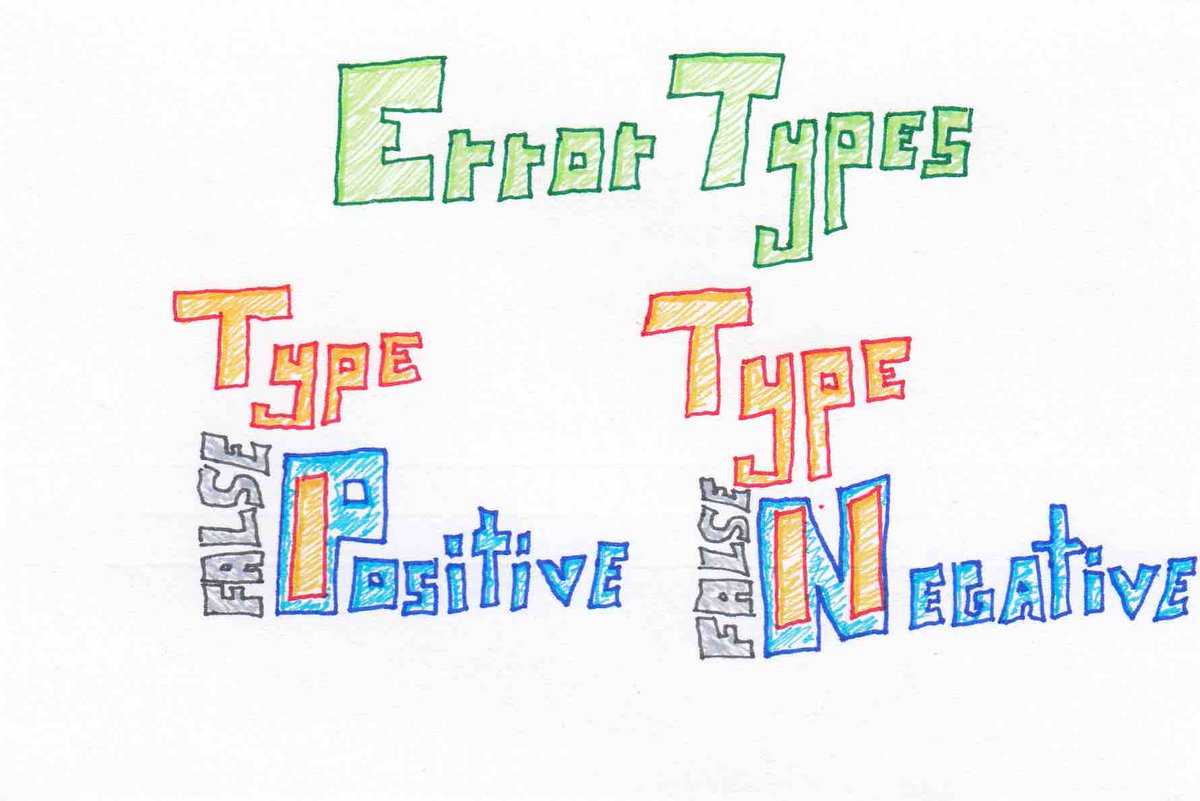 Error Types
Type I
FALSE Positive
Type II
FALSE Negative